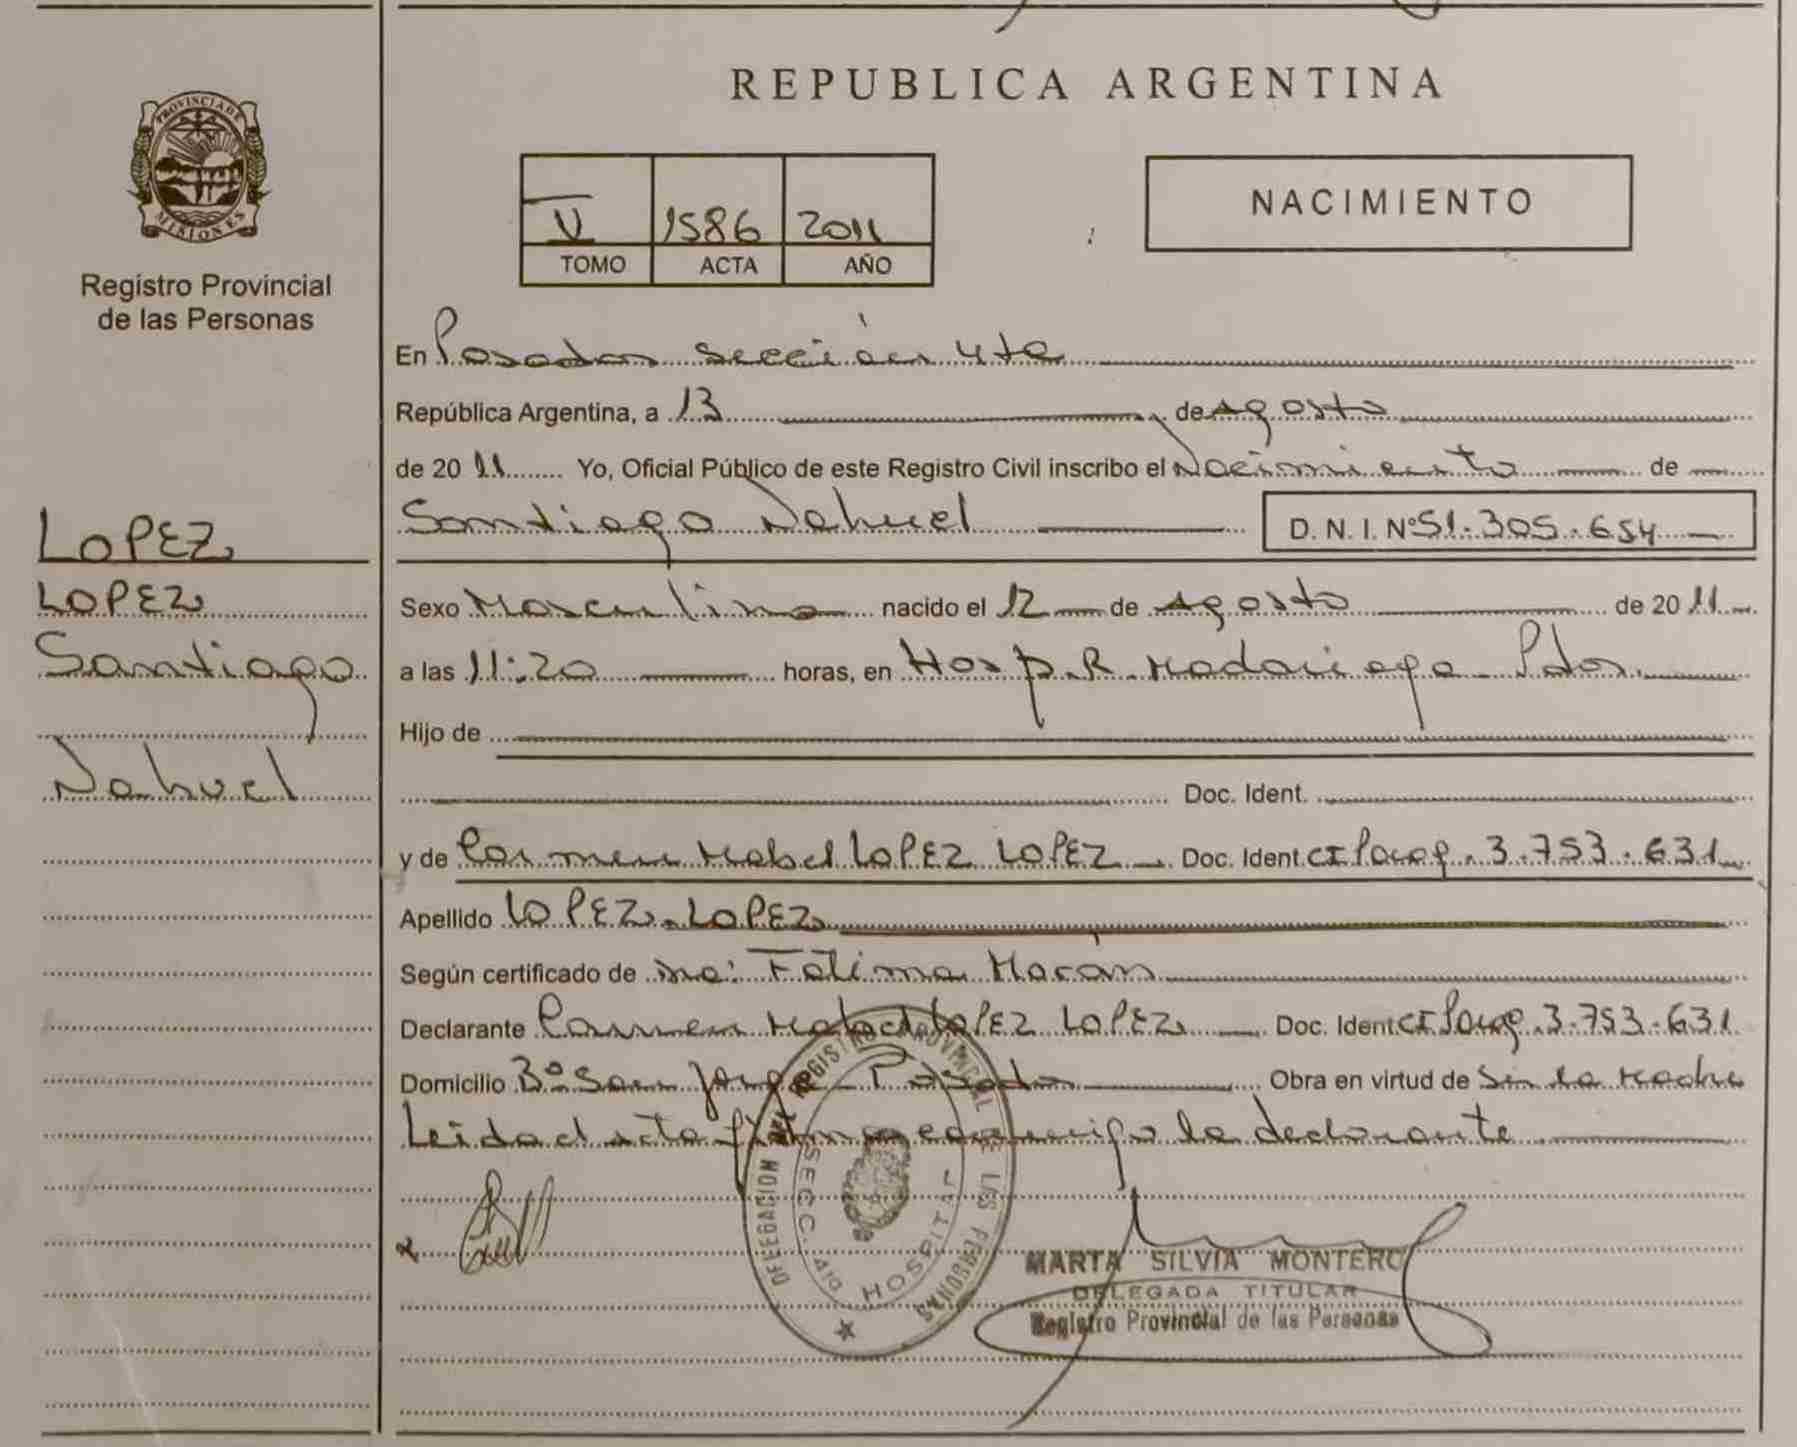 PROVINCIA DE
MISIONES
Registro Provincial
de las Personas
LOPEZ
LOPEZ
Santiago
Nahuel
REPUBLICA ARGENTINA
V 1586 2011
TOMO ACTA AÑO
NACIMIENTO
En Posadas sección 4ta
República Argentina, a 13 de Agosto
de 20 11 Yo, Oficial Público de este Registro Civil inscribo el Nacimiento de
Santiago Nahuel D. N. I. Nº 51.305.654
Sexo Masculino nacido el 12 de Agosto de 20 11
a las 11:20 horas, en Hosp. R. Madariaga - Pdas.
Hijo de
Doc. Ident.
y de Carmen Mabel LOPEZ LOPEZ Doc. Ident. CI Parag. 3.753.631
Apellido LOPEZ LOPEZ
Según certificado de Fátima Morán
Declarante Carmen Mabel LOPEZ LOPEZ Doc. Ident. CI Parag. 3.753.631
Domicilio Bº San Jorge - Posadas Obra en virtud de Ser la Madre
Leida el acta firma conmigo la declarante
DELEGACION DEL REGISTRO PROVINCIAL DE LAS PERSONAS
SECC. 4ta HOSPITAL
MARTA SILVIA MONTERO
DELEGADA TITULAR
Registro Provincial de las Personas